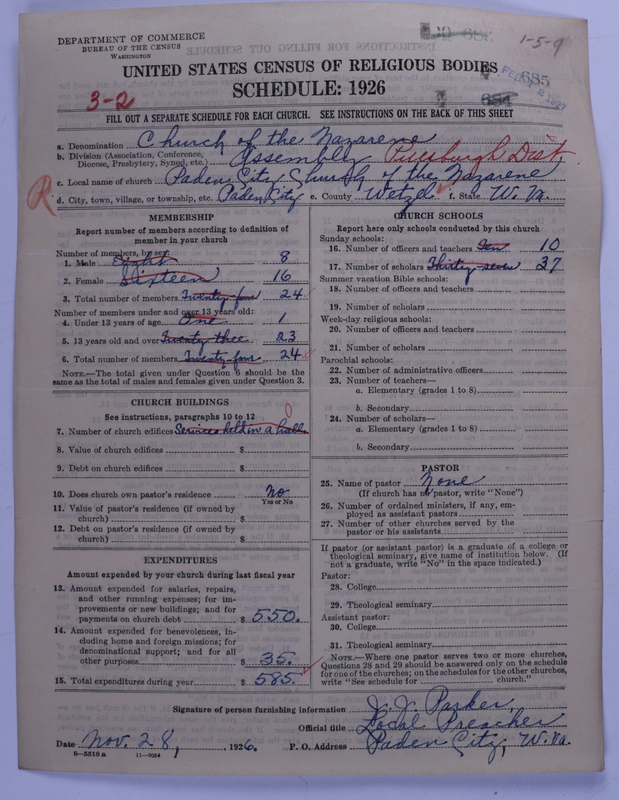 DEPARTMENT OF COMMERCE
BUREAU OF THE CENSUS
WASHINGTON
1-5-9
685
UNITED STATES CENSUS OF RELIGIOUS BODIES
SCHEDULE: 1926
3-2
FILL OUT A SEPARATE SCHEDULE FOR EACH CHURCH. SEE INSTRUCTIONS ON THE BACK OF THIS SHEET
a. Denomination Church of the Nazarene
b. Division (Association, Conference, Diocese, Presbytery, Synod, etc.) Assembly Pittsburgh Dist
c. Local name of church Paden City Church of the Nazarene
R
d. City, town, village, or township, etc. Paden City e. County Wetzel f. State W. Va.
MEMBERSHIP
Report number of members according to definition of
member in your church
Number of members, by sex:
1. Male Eight 8
2. Female Sixteen 16
3. Total number of members Twenty four 24
Number of members under and over 13 years old:
4. Under 13 years of age One 1
5. 13 years old and over Twenty three 23
6. Total number of members Twenty four 24
NOTE.—The total given under Question 6 should be the
same as the total of males and females given under Question 3.
CHURCH BUILDINGS
See instructions, paragraphs 10 to 12
0
7. Number of church edifices Services held in a hall
8. Value of church edifices $
9. Debt on church edifices $
10. Does church own pastor's residence No
Yes or No
11. Value of pastor's residence (if owned by
church) $
12. Debt on pastor's residence (if owned by
church) $
EXPENDITURES
Amount expended by your church during last fiscal year
13. Amount expended for salaries, repairs,
and other running expenses; for im-
provements or new buildings; and for
payments on church debt $ 550.
14. Amount expended for benevolences, in-
cluding home and foreign missions; for
denominational support; and for all
other purposes $ 35.
15. Total expenditures during year $ 585.
CHURCH SCHOOLS
Report here only schools conducted by this church
Sunday schools:
16. Number of officers and teachers Ten 10
17. Number of scholars Thirty seven 37
Summer vacation Bible schools:
18. Number of officers and teachers
19. Number of scholars
Week-day religious schools:
20. Number of officers and teachers
21. Number of scholars
Parochial schools:
22. Number of administrative officers
23. Number of teachers—
a. Elementary (grades 1 to 8)
b. Secondary
24. Number of scholars—
a. Elementary (grades 1 to 8)
b. Secondary
PASTOR
25. Name of pastor None
(If church has no pastor, write "None")
26. Number of ordained ministers, if any, em-
ployed as assistant pastors
27. Number of other churches served by the
pastor or his assistants
If pastor (or assistant pastor) is a graduate of a college or
theological seminary, give name of institution below. (If
not a graduate, write "No" in the space indicated.)
Pastor:
28. College
29. Theological seminary
Assistant pastor:
30. College
31. Theological seminary
NOTE.—Where one pastor serves two or more churches,
Questions 28 and 29 should be answered only on the schedule
for one of the churches; on the schedules for the other churches,
write "See schedule for church."
Signature of person furnishing information J. J. Parker,
Official title Local Preacher
Date Nov. 28, 1926. P. O. Address Paden City, W. Va.
8-5518a 11-9024